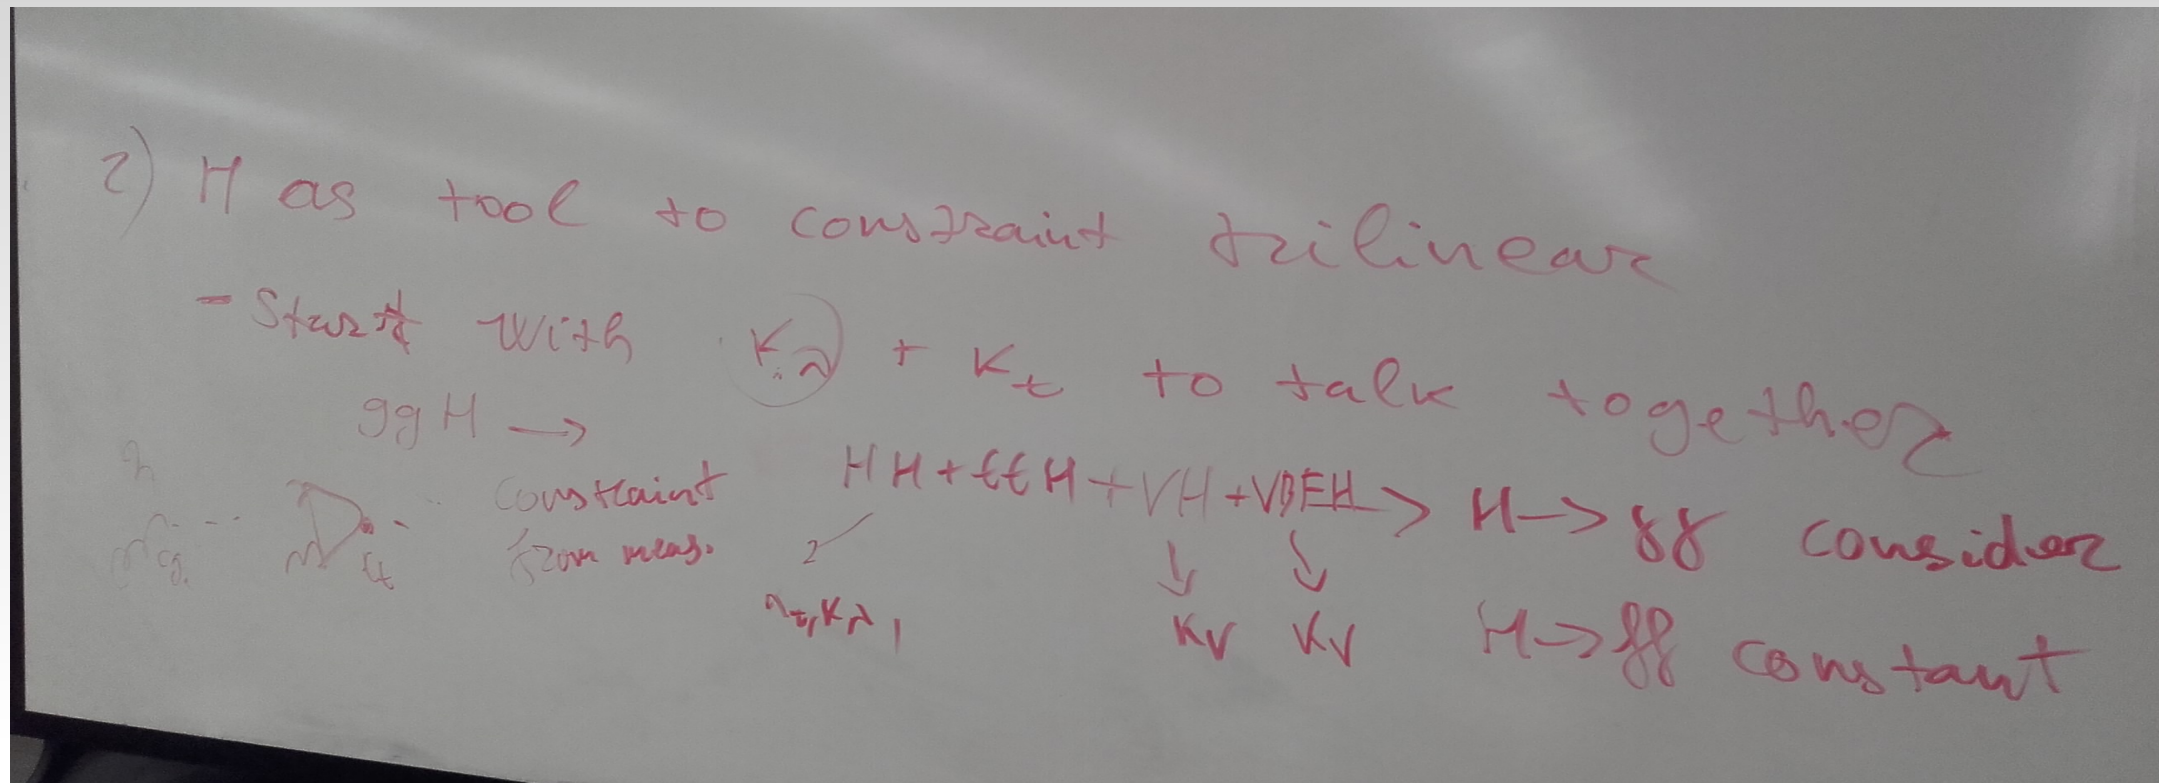 2) H as tool to constraint trilinear
- Start with κλ + κt to talk together
ggH →
constraint
from meas.
HH + ttH + VH + VBFH > H → γγ consider
κλ
κV κV H → ff constant